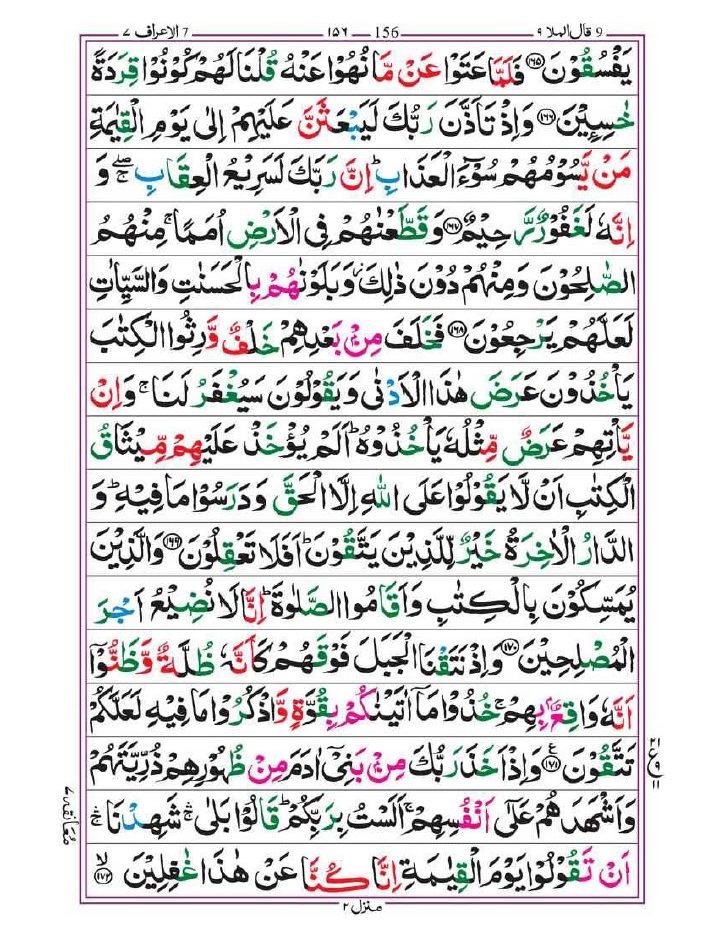 9 قال الملا ٩ 156 ١٥٦ 7 الاعراف ٧
يَفْسُقُوْنَ ﴿۱۶۵﴾ فَلَمَّا عَتَوْا عَنْ مَّا نُهُوْا عَنْهُ قُلْنَا لَهُمْ كُوْنُوْا قِرَدَةً
خٰسِـِٕیْنَ ﴿۱۶۶﴾ وَاِذْ تَاَذَّنَ رَبُّكَ لَیَبْعَثَنَّ عَلَیْهِمْ اِلٰی یَوْمِ الْقِیٰمَةِ
مَنْ یَّسُوْمُهُمْ سُوْٓءَ الْعَذَابِ ؕ اِنَّ رَبَّكَ لَسَرِیْعُ الْعِقَابِ ۚۖ وَ
اِنَّهٗ لَغَفُوْرٌ رَّحِیْمٌ ﴿۱۶۷﴾ وَقَطَّعْنٰهُمْ فِی الْاَرْضِ اُمَمًا ۚ مِنْهُمُ
الصّٰلِحُوْنَ وَمِنْهُمْ دُوْنَ ذٰلِكَ ؗ وَبَلَوْنٰهُمْ بِالْحَسَنٰتِ وَالسَّیِّاٰتِ
لَعَلَّهُمْ یَرْجِعُوْنَ ﴿۱۶۸﴾ فَخَلَفَ مِنْۢ بَعْدِهِمْ خَلْفٌ وَّرِثُوا الْكِتٰبَ
یَاْخُذُوْنَ عَرَضَ هٰذَا الْاَدْنٰی وَیَقُوْلُوْنَ سَیُغْفَرُ لَنَا ۚ وَاِنْ
یَّاْتِهِمْ عَرَضٌ مِّثْلُهٗ یَاْخُذُوْهُ ؕ اَلَمْ یُؤْخَذْ عَلَیْهِمْ مِّیْثَاقُ
الْكِتٰبِ اَنْ لَّا یَقُوْلُوْا عَلَی اللّٰهِ اِلَّا الْحَقَّ وَدَرَسُوْا مَا فِیْهِ ؕ وَ
الدَّارُ الْاٰخِرَةُ خَیْرٌ لِّلَّذِیْنَ یَتَّقُوْنَ ؕ اَفَلَا تَعْقِلُوْنَ ﴿۱۶۹﴾ وَالَّذِیْنَ
یُمَسِّكُوْنَ بِالْكِتٰبِ وَاَقَامُوا الصَّلٰوةَ ؕ اِنَّا لَا نُضِیْعُ اَجْرَ
الْمُصْلِحِیْنَ ﴿۱۷۰﴾ وَاِذْ نَتَقْنَا الْجَبَلَ فَوْقَهُمْ كَاَنَّهٗ ظُلَّةٌ وَّظَنُّوْۤا
اَنَّهٗ وَاقِعٌۢ بِهِمْ ۚ خُذُوْا مَاۤ اٰتَیْنٰكُمْ بِقُوَّةٍ وَّاذْكُرُوْا مَا فِیْهِ لَعَلَّكُمْ
تَتَّقُوْنَ ﴿۱۷۱﴾ ع وَاِذْ اَخَذَ رَبُّكَ مِنْۢ بَنِیْۤ اٰدَمَ مِنْ ظُهُوْرِهِمْ ذُرِّیَّتَهُمْ
وَاَشْهَدَهُمْ عَلٰۤی اَنْفُسِهِمْ ۚ اَلَسْتُ بِرَبِّكُمْ ؕ قَالُوْا بَلٰی ۛۚ شَهِدْنَا ۛۚ
اَنْ تَقُوْلُوْا یَوْمَ الْقِیٰمَةِ اِنَّا كُنَّا عَنْ هٰذَا غٰفِلِیْنَ ﴿۱۷۲﴾ لا
۲۱ ع ۹ ۱۱
معانقه ٧
منزل ۲